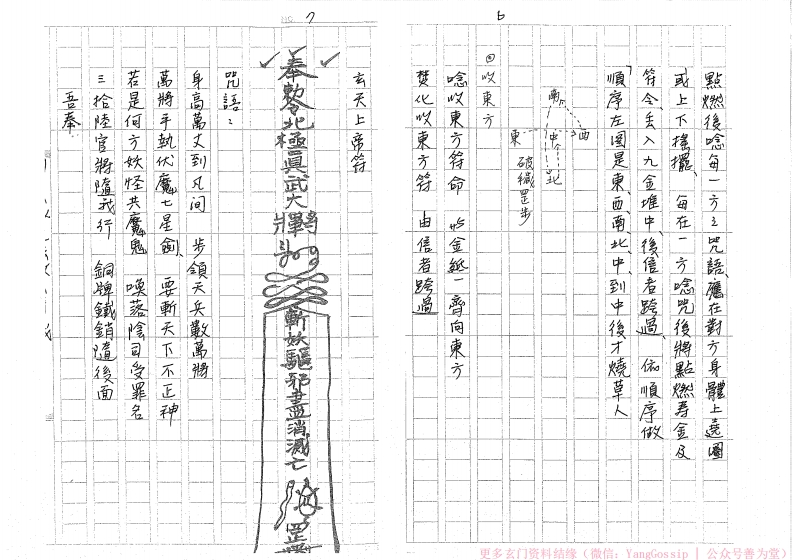 6
點燃後唸每一方之咒語，應在對方身體上遶圈
或上下搖擺、每在一方唸咒後將點燃壽金及
符令、丟入九金堆中、後信者跨過、依順序做
順序左圖是東、西、南、北、中、到中後才燒草人
南
西
中
北
東
破穢罡步
回收東方
唸收東方符命 以金紙一齊向東方
焚化收東方符 由信者跨過
7
玄天上帝符
奉勅令北極真武大將
斬妖驅邪盡消滅亡
罡
咒語：
身高萬丈到凡間 步領天兵數萬將
萬將手執伏魔七星劍 要斬天下不正神
若是何方妖怪共魔鬼 喚落陰司受罪名
三拾陸官將隨我行 銅牌鐵銷隨後面
吾奉
更多玄门资料结缘（微信：YangGossip | 公众号善为堂）